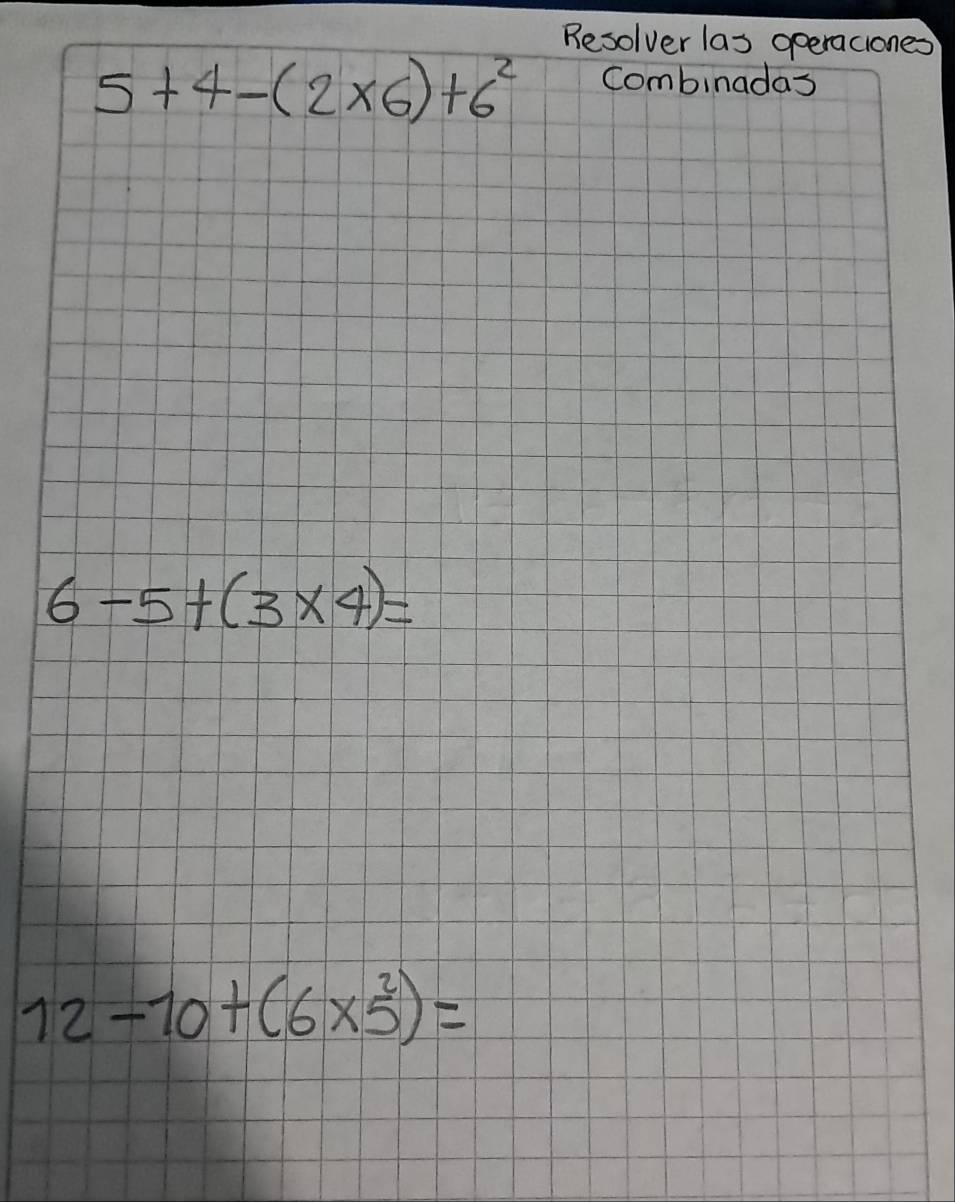 Resolver las operaciones
combinadas
5+4-(2×6)+6²
6-5+(3×4)=
12-10+(6×5²)=